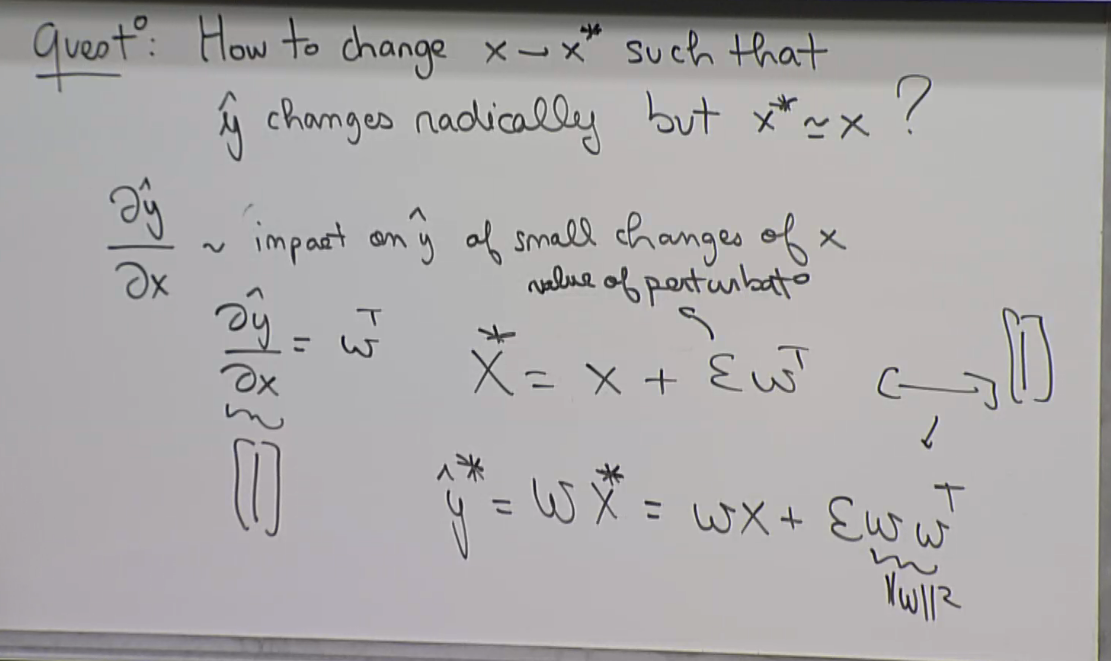 Quest°: How to change x → x* such that
ŷ changes radically but x* ≃ x ?
∂ŷ/∂x ~ impact on ŷ of small changes of x
value of perturbat°
∂ŷ/∂x = wᵀ x* = x + εwᵀ
ŷ* = wx* = wx + εwwᵀ
||w||²